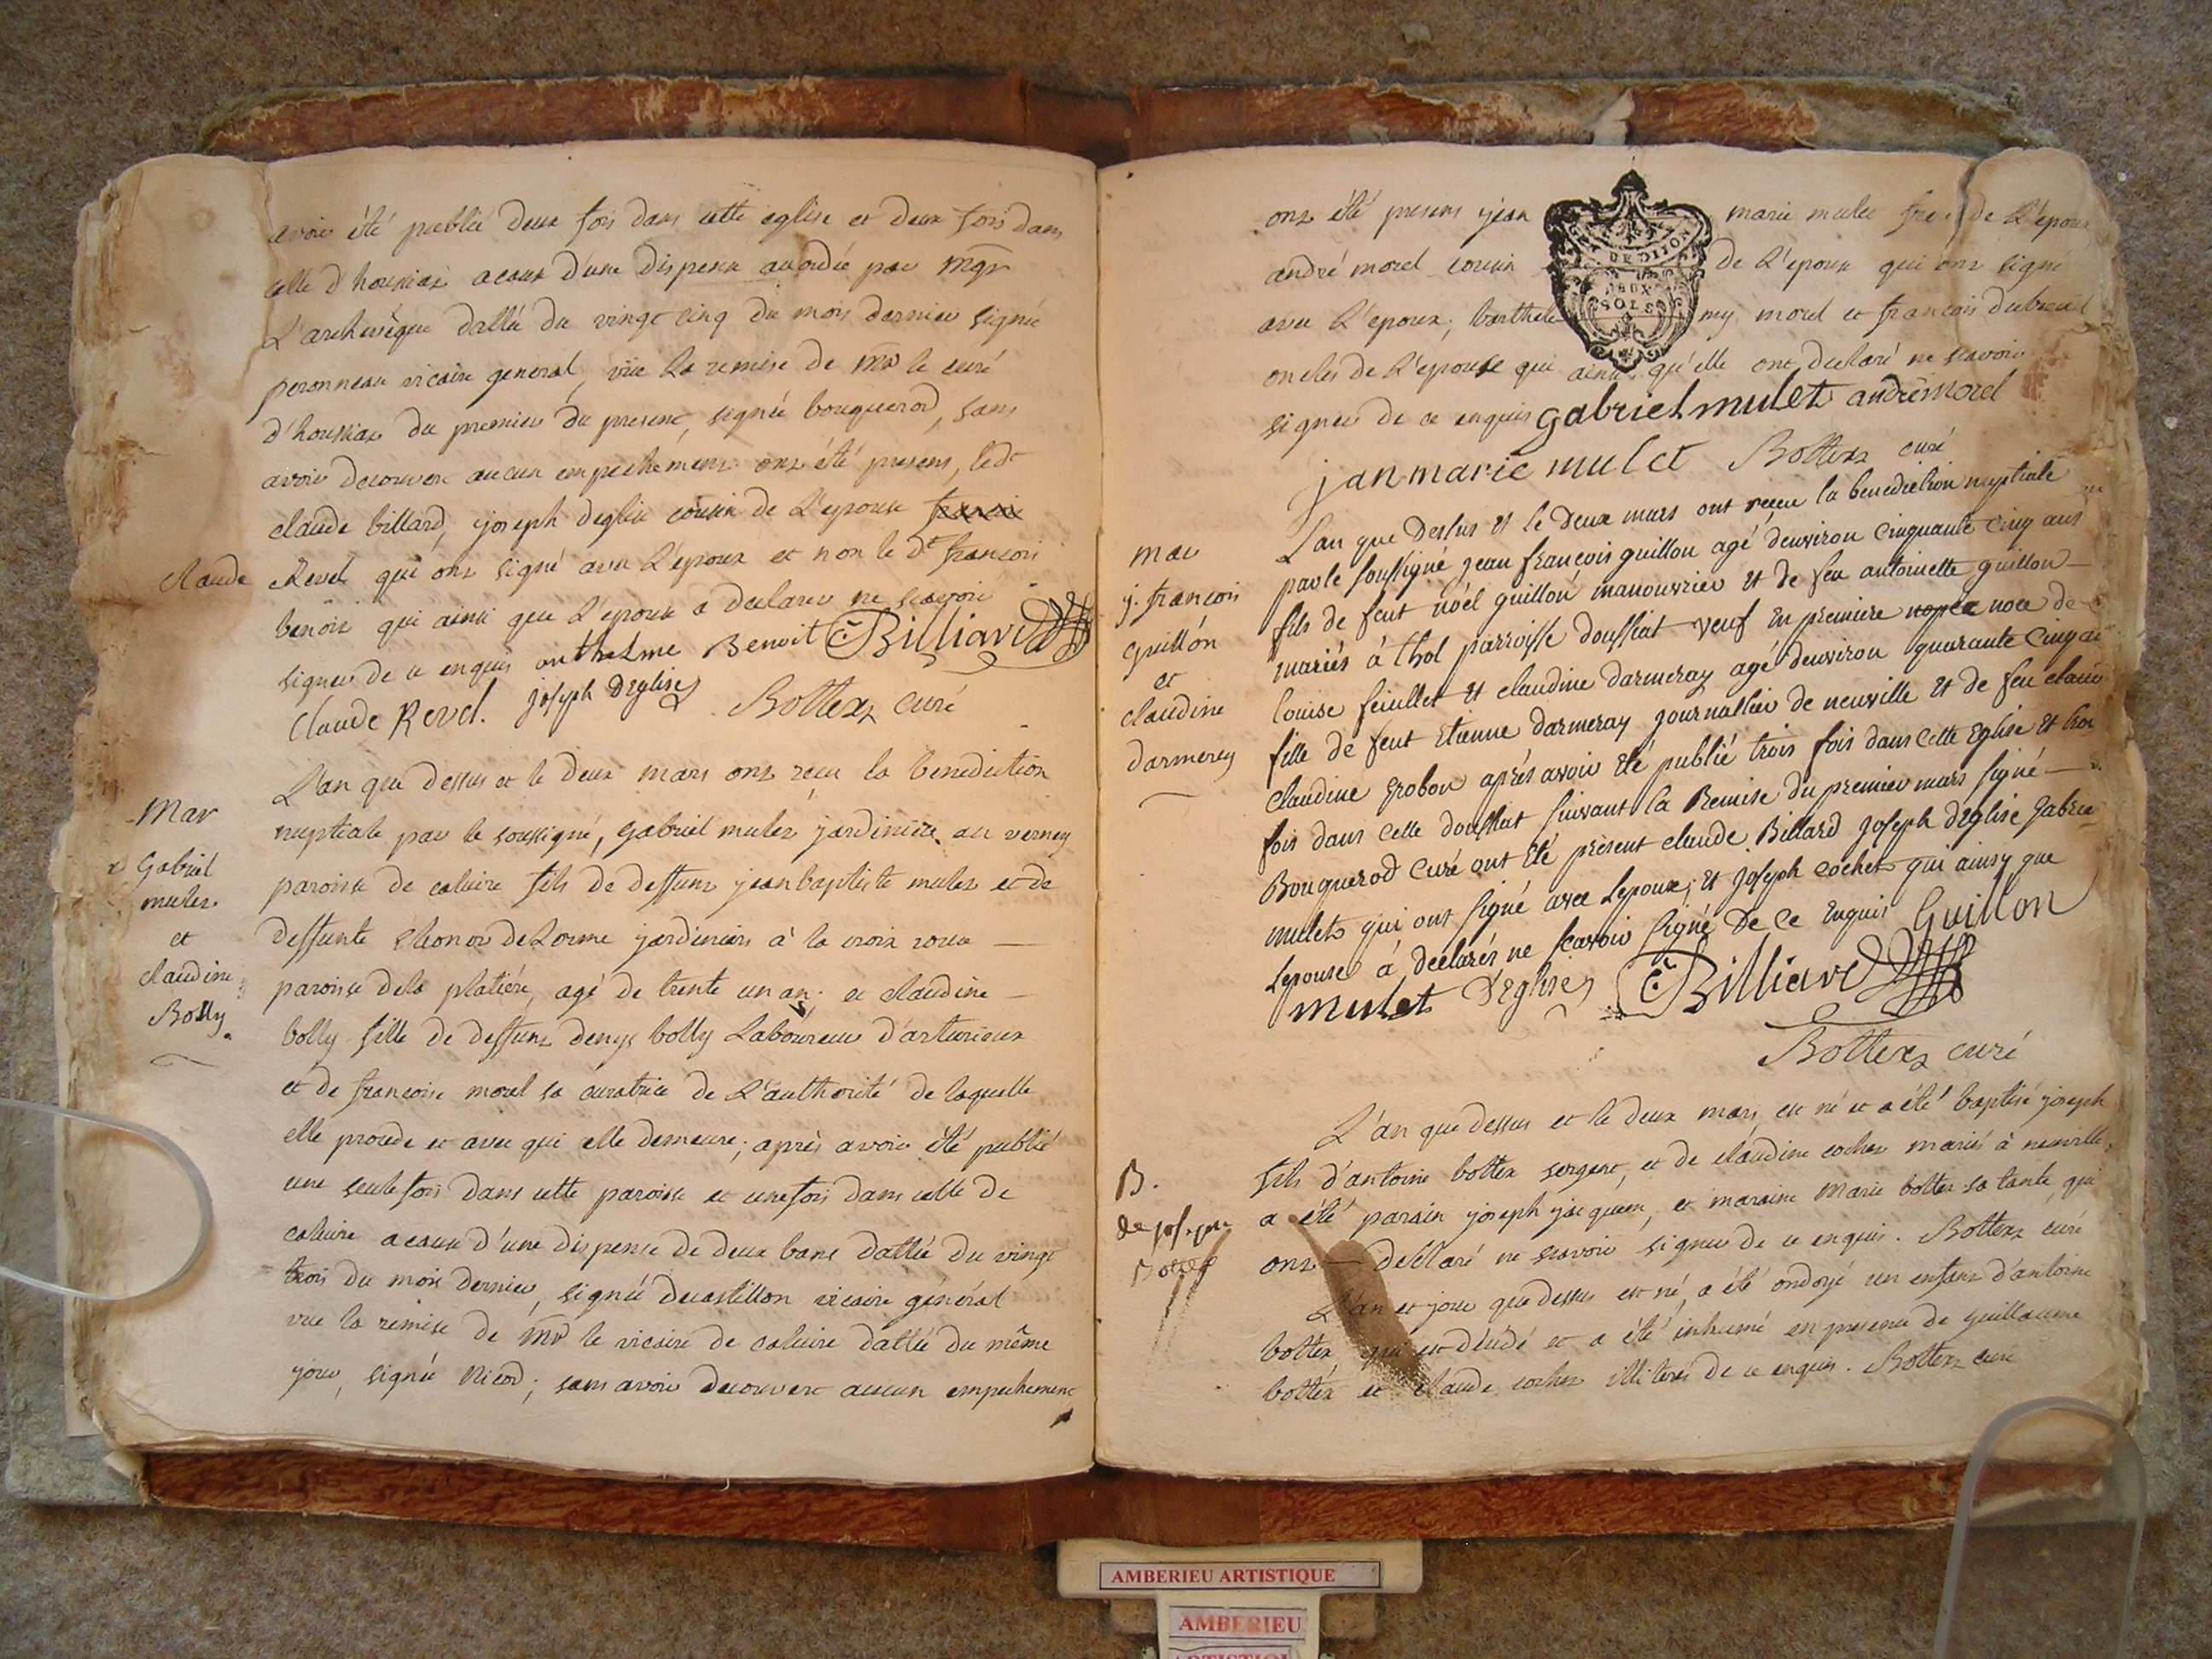 avoir été publié deux fois dans cette eglise et deux fois dans
celle d'houssiat a cause d'une dispense accordée par Mgr
L'archevêque dattée du vingt cinq du mois dernier signée
peronneau vicaire general, vüe la remise de Mr le curé
d'houssiat du premier du present, signée bouquerod, sans
avoir decouvert aucun empechement ont été presens, ledt
claude billard, joseph deglise cousin de L'epouse
claude Revel qui ont signé avec L'epoux et non le dt francois
benoit qui ainsi que L'epouse a declaré ne scavoir
signer de ce enquis anthelme Benoit C Billiard
Claude Revel. joseph Deglise Bottex curé
L'an que dessus et le deux mars ont reçu la benediction
Mar
nuptiale par le soussigné, gabriel mulet jardinier au verney
Gabriel
paroisse de caluire fils de deffunt jean baptiste mulet et de
mulet
et
deffunte eleonor deLorme jardiniers à la croix rousse
claudine
paroisse de la platiére, agé de trente un an et claudine
Bolly
bolly fille de deffunt denys bolly Laboureur d'arturieux
et de francoise morel sa curatrice de L'authorité de laquelle
elle procede et avec qui elle demeure; après avoir été publié
une seule fois dans cette paroisse et une fois dans celle de
caluire a cause d'une dispense de deux bans dattée du vingt
trois du mois dernier, signée decastillon vicaire général
vue la remise de Mr le vicaire de caluire dattée du même
jour, signée Nicod; sans avoir decouvert aucun empechement
ont été presens jean marie mulet frere de L'epoux
DE DIJON
DEUX
SOLS
andré morel cousin de L'epouse qui ont signé
avec L'epoux; barthelemy morel et francois dubreuil
oncles de L'epouse qui ainsi qu'elle ont declaré ne scavoir
signer de ce enquis gabriel mulet andré morel
jan marie mulet Bottex curé
Lan que dessus et le deux mars ont reçu la benediction nuptiale
mar
j. francois
guillon
et
claudine
darmerey
par le soussigné jean françois guillon agé denviron cinquante cinq ans
fils de feut noël guillon manouvrier et de feu antoinette guillon
mariés à thol parroisse doussiat veuf en premiere noce de
louise feuillet et claudine darmeray agé denviron quarante cinq an
fille de feut etienne darmeray journallier de neuville et de feu claude
claudine grobon aprés avoir été publié trois fois dans cette eglise et trois
fois dans celle doussiat suivant la Remise du premier mars signé
Bouquerod curé ont été présent claude Billard joseph deglise gabriel
mulet qui ont signé avec lepoux; et joseph cochet qui ainsy que
lepouse à declarés ne scavoir signé De ce enquis Guillon
mulet Deglise C Billiard
Bottex curé
L'an que dessus et le deux mars est né et a été baptisé joseph
B.
de joseph
Bottex
fils d'antoine bottex sergent, et de claudine cochet mariés à neuville,
a été parain joseph jacquem, et maraine marie bottex sa tante, qui
ont declaré ne scavoir signer de ce enquis. Bottex curé
L'an et jour que dessus est né, a été ondoyé un enfant d'antoine
bottex qui est décédé et a été inhumé en presence de guillaume
bottex et claude cochet illiterés de ce enquis. Bottex curé
AMBERIEU ARTISTIQUE
AMBERIEU